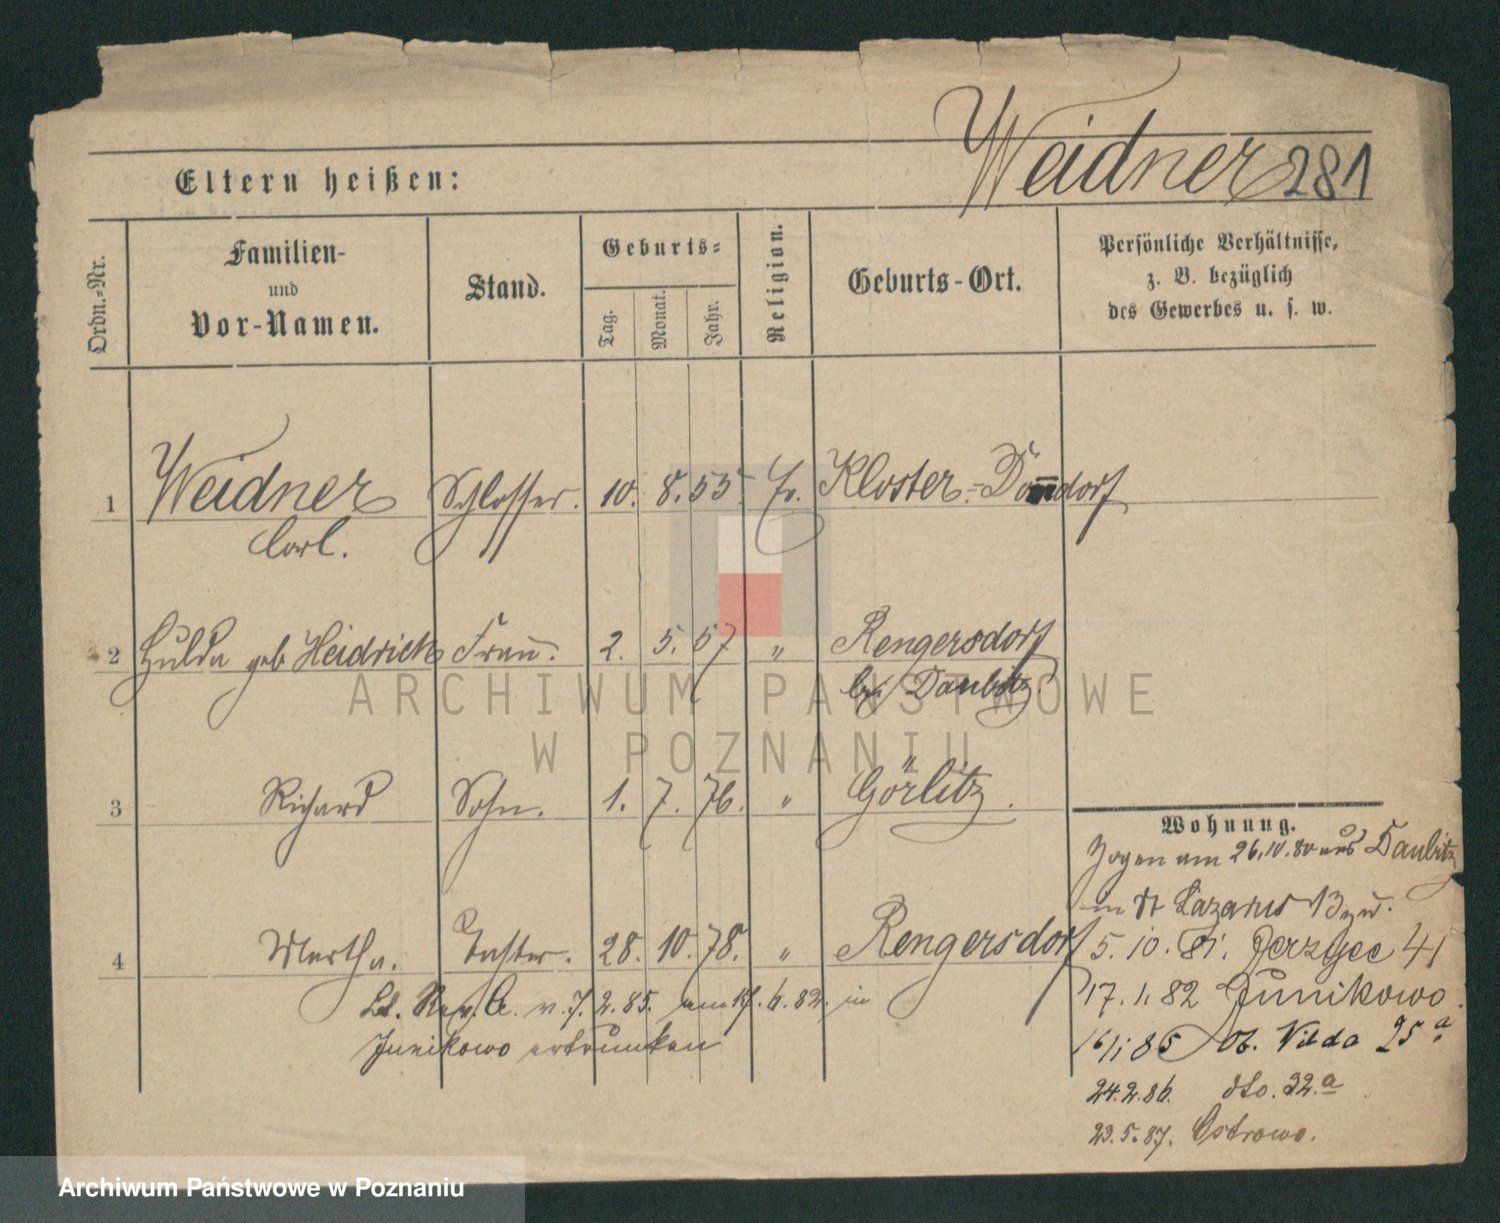 Weidner 281
Eltern heißen:
Ordn.-Nr.
Familien-
und
Vor-Namen.
Stand.
Geburts-
Tag.
Monat.
Jahr.
Religion.
Geburts-Ort.
Persönliche Verhältnisse,
z. B. bezüglich
des Gewerbes u. s. w.
1 Weidner Schlosser. 10. 8. 55. Kloster-Donndorf
Carl.
2 Hulda geb Heidrick Frau. 2. 5. 57 " Rengersdorf
bei Daubitz.
3 Richard Sohn. 1. 7. 76. " Görlitz.
4 Martha. Tochter. 28. 10. 78. " Rengersdorf
Lt. Rev. A. v. 7. 2. 85. am 17. 6. 82. in
Junikowo ertrunken
Wohnung.
Zogen am 26.10.80 aus Daubitz
in St Lazarus 13
5. 10. 81. Jerzyce 41
17. 1. 82 Junikowo.
16/1 85 Ob. Wilda 25a
24.2.86. dto. 32.a
23.5.87. Ostrowo.
ARCHIWUM PAŃSTWOWE
W POZNANIU
Archiwum Państwowe w Poznaniu